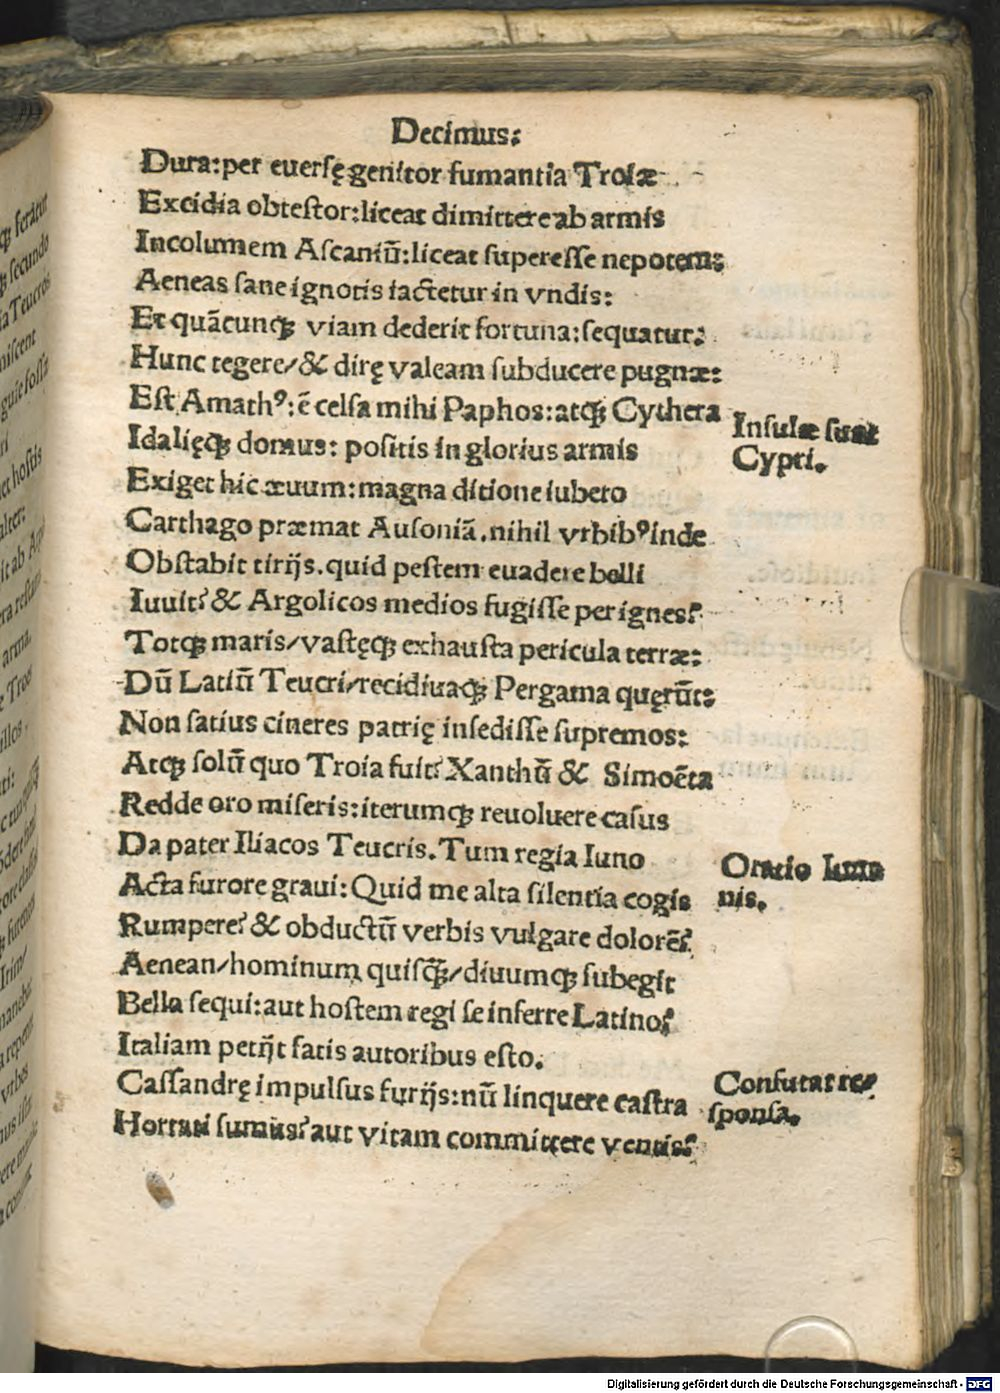 Decimus:
Dura:per euersę genitor fumantia Troiæ
Excidia obtestor:liceat dimittere ab armis
Incolumem Ascaniū:liceat superesse nepotem:
Aeneas sane ignotis iactetur in vndis:
Et quācunqꝫ viam dederit fortuna:sequatur:
Hunc tegere/& dirę valeam subducere pugnæ:
Est Amathꝰ:ē celsa mihi Paphos:atqꝫ Cythera
Insulæ sunt
Idalięqꝫ domus: positis in glorius armis
Cypri.
Exiget hic æuum:magna ditione iubeto
Carthago præmat Ausoniā.nihil vrbibꝰ inde
Obstabit tirijs.quid pestem euadere belli
Iuuit? & Argolicos medios fugisse per ignes?
Totqꝫ maris/vastęqꝫ exhausta pericula terræ:
Dū Latiū Teucri/recidiuaqꝫ Pergama quęrūt:
Non satius cineres patrię insedisse supremos:
Atqꝫ solū quo Troia fuit? Xanthū & Simoēta
Redde oro miseris:iterumqꝫ reuoluere casus
Da pater Iliacos Teucris.Tum regia Iuno
Oratio Iuno
Acta furore graui:Quid me alta silentia cogis
nis.
Rumpere? & obductū verbis vulgare dolorē?
Aenean/hominum quisꝙ̃/diuumqꝫ subegit
Bella sequi:aut hostem regi se inferre Latino?
Italiam petijt fatis autoribus esto.
Cassandrę impulsus furijs:nū linquere castra
Confutat re/
Hortati sumus? aut vitam committere ventis?
sponsa.
Digitalisierung gefördert durch die Deutsche Forschungsgemeinschaft - DFG